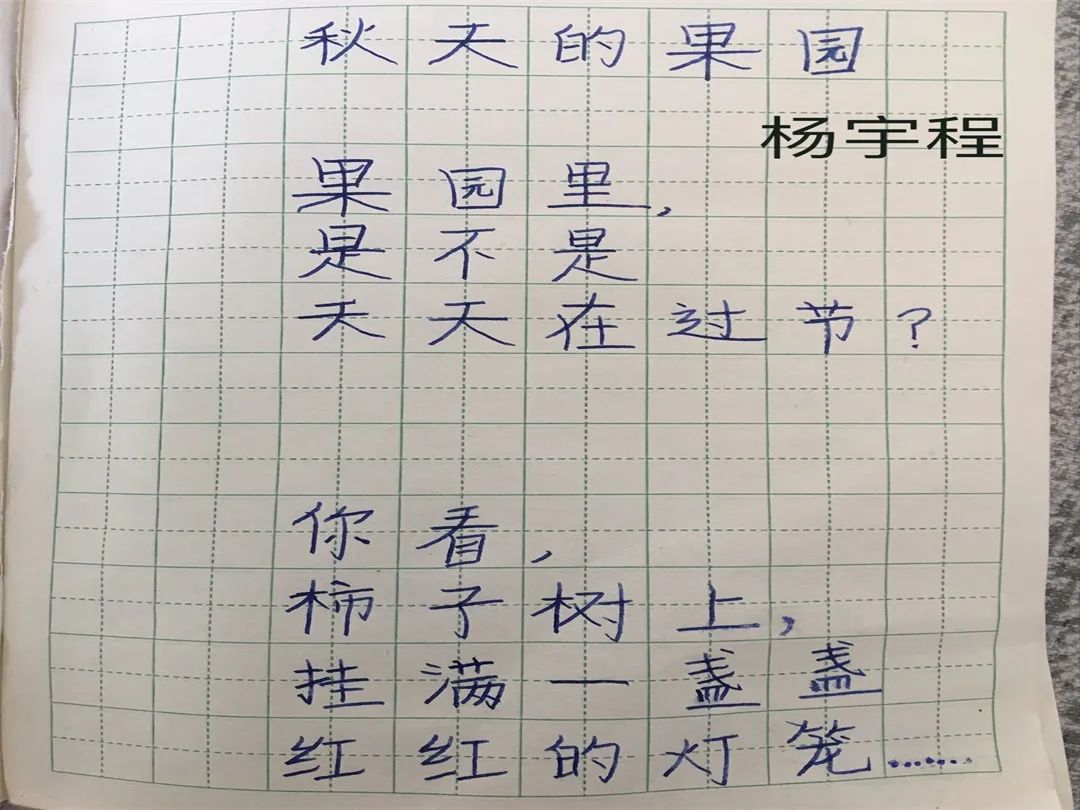 秋天的果园
杨宇程
果园里，
是不是
天天在过节？
你看，
柿子树上，
挂满一盏盏
红红的灯笼……